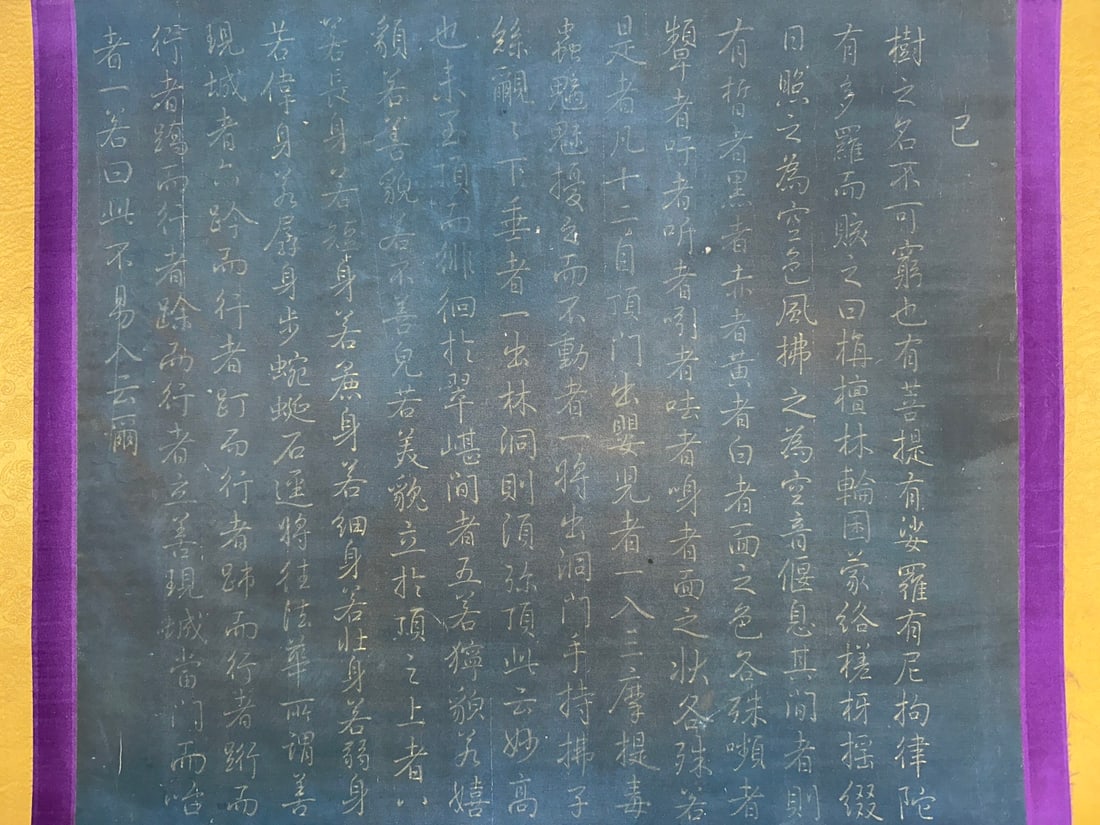 己
樹之名不可窮也有菩提有娑羅有尼拘律陀
有多羅而賅之曰栴檀林輪囷蒙絡槎枒搖綴
日照之為空色風拂之為空音偃息其間者則
有晳者黑者赤者黃者白者面之色各殊嚬者
顰者吁者听者呞者呿者呬者面之狀各殊若
是者凡十二自頂門出嬰兒者一入三摩提毒
蟲魑魅擾之而不動者一將出洞門手持拂子
絲覼之下垂者一出林洞則須弥頂此云妙高
也未至頂而徘徊於翠嵁間者五若獰貌若嬉
貌若善貌若不善皃若美貌立於頂之上者八
若長身若短身若麁身若細身若壯身若弱身
若偉身若孱身步蜿蜒石逕將往法華所謂善
現城者六跉而行者趵而行者𧿳而行者䟰而
行者蹋而行者跦而行者立善現城當門而咍
者一若曰此不易入云爾